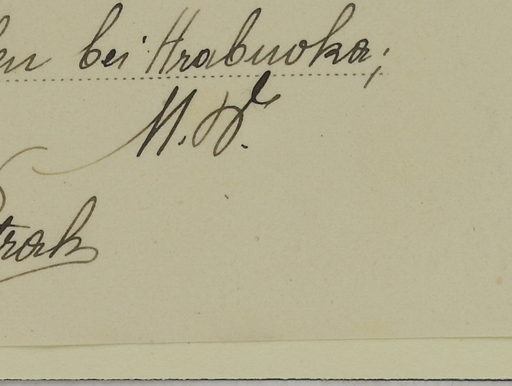 en bei Hrabuvka;
M. W.
trak